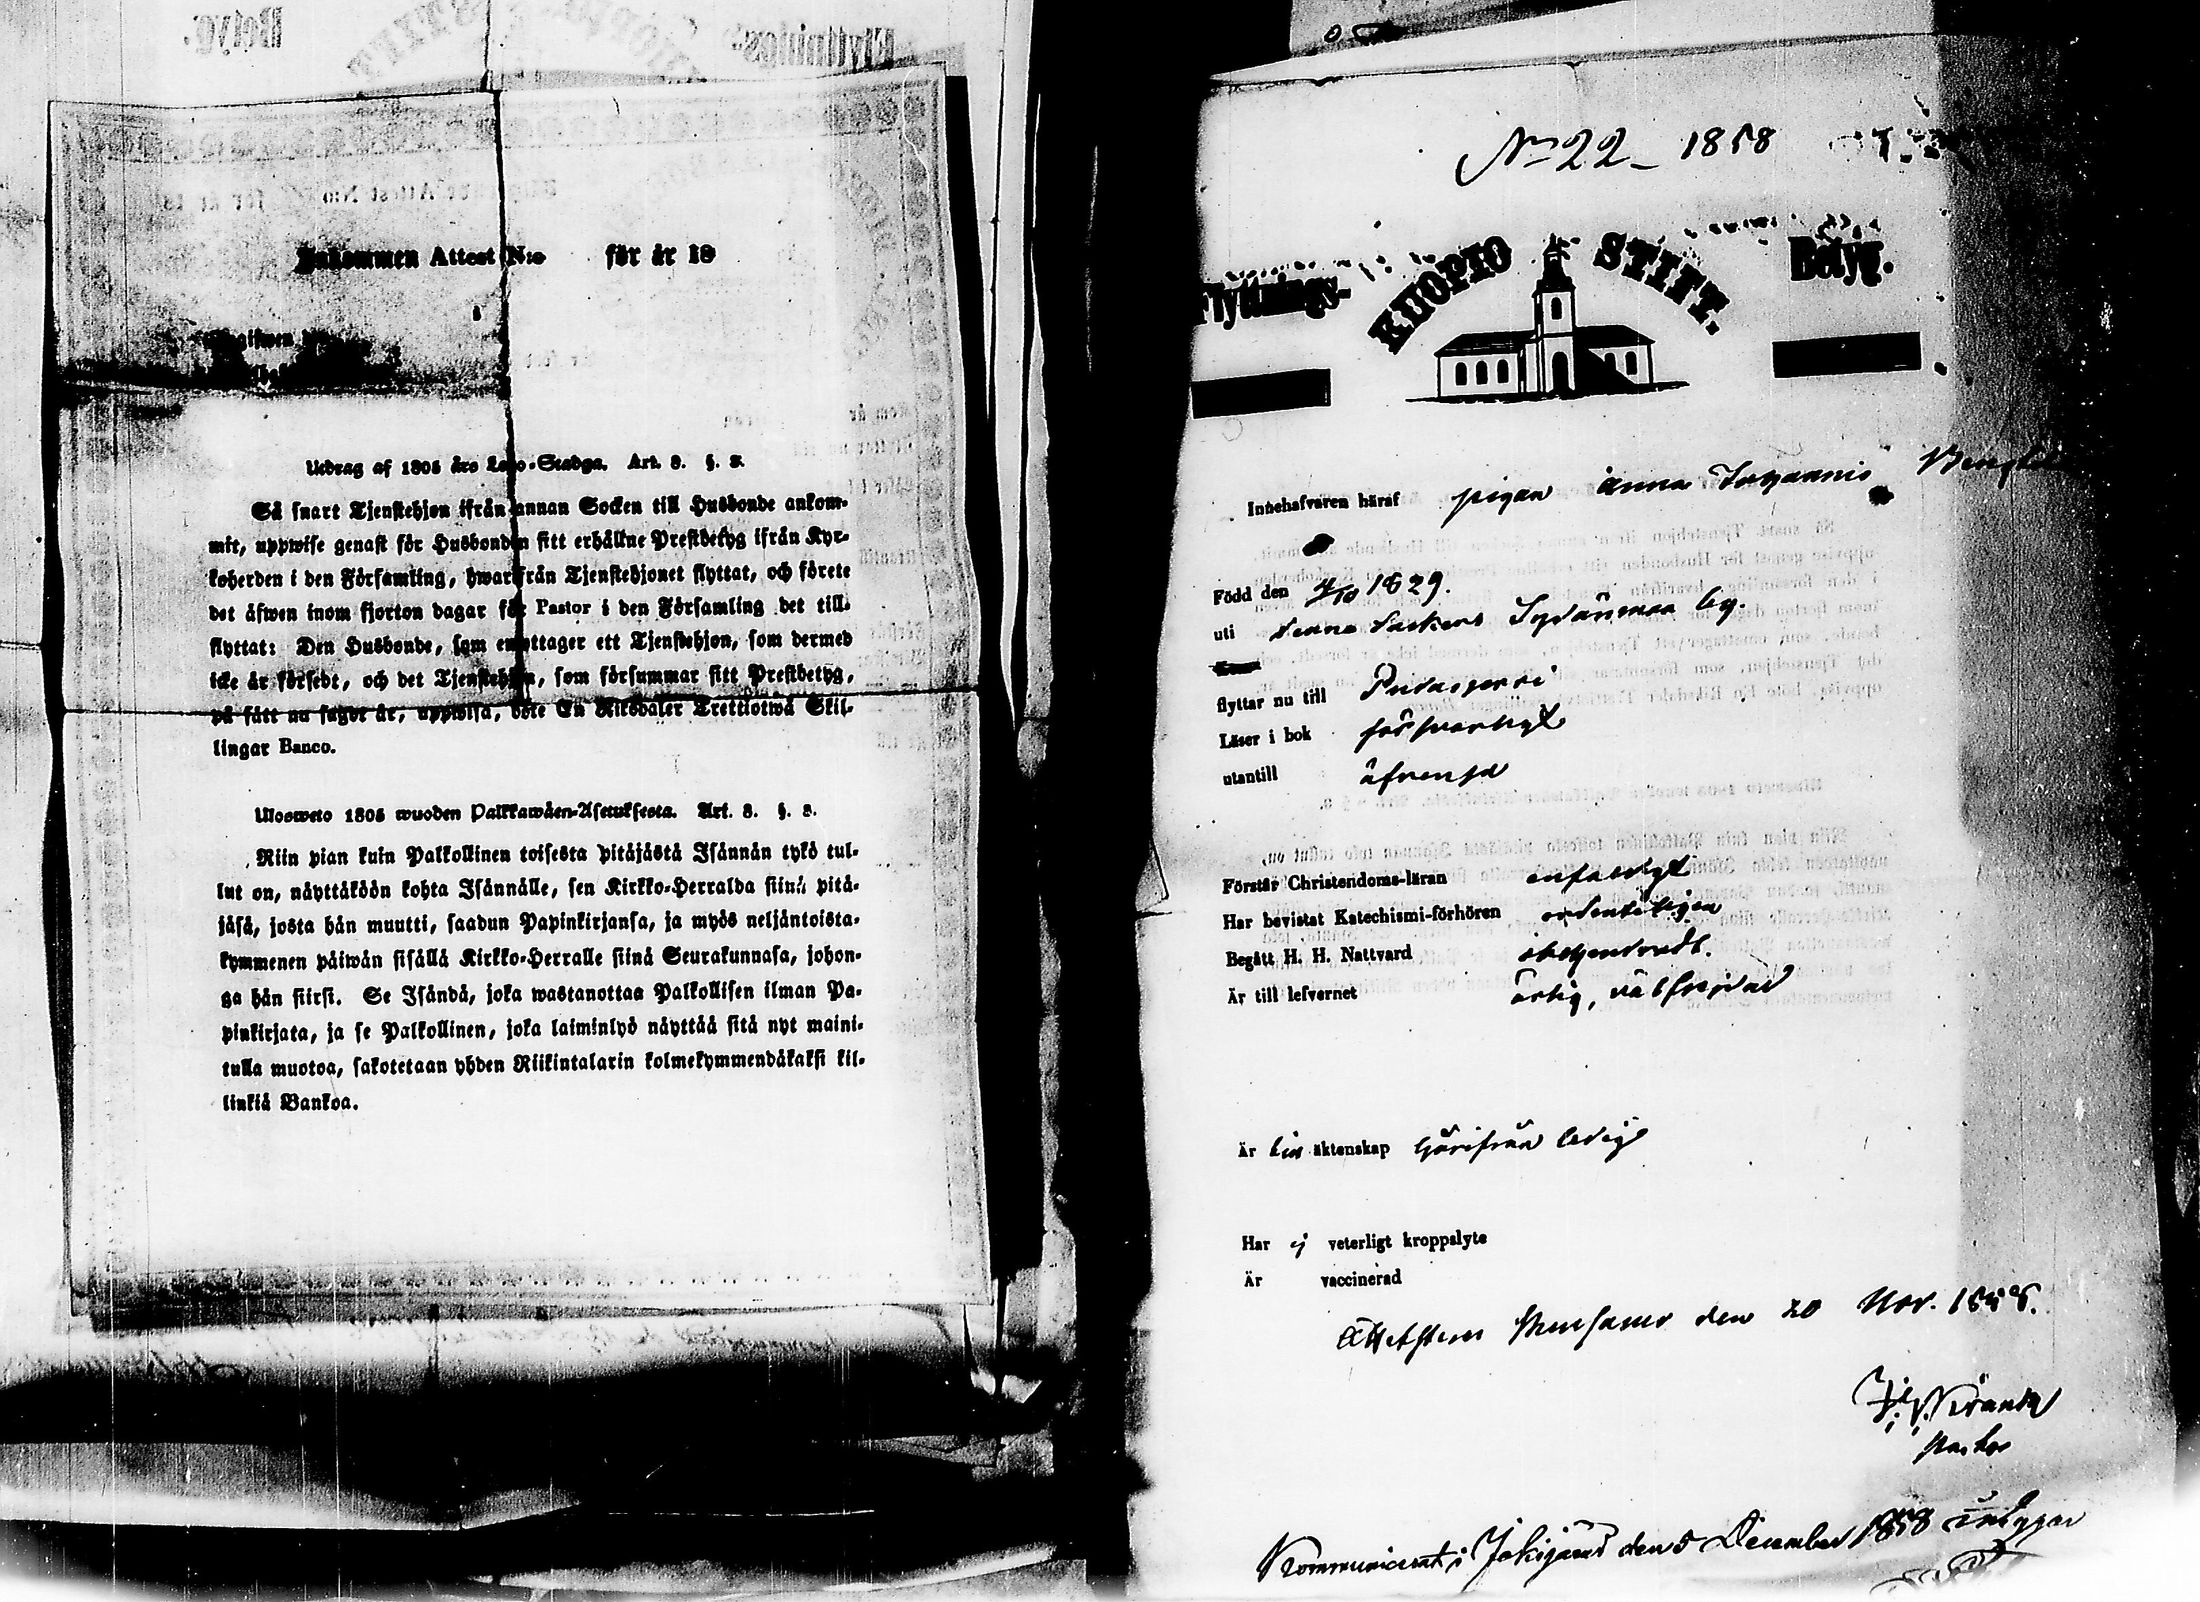 Inkommen Attest N:o för år 18
Utdrag af 1805 års Lego-Stadga. Art. 8. §. 8.
Så snart Tjenstehjon ifrån annan Socken till Husbonde ankom-
mit, uppwise genast för Husbonden sitt erhållne Prestbetyg ifrån Kyr-
koherden i den Församling, hwarifrån Tjenstehjonet flyttat, och förete
det äfwen inom fjorton dagar för Pastor i den Församling det till-
flyttat: Den Husbonde, som emottager ett Tjenstehjon, som dermed
icke är försedt, och det Tjenstehjon, som försummar sitt Prestbetyg,
på sätt nu sagdt är, uppwisa, böte En Riksdaler Trettiotwå Skil-
lingar Banco.
Ulosweto 1805 wuoden Palkkawäen-Asetuksesta. Art. 8. §. 8.
Niin pian kuin Palkollinen toisesta pitäjästä Isännän tykö tul-
lut on, näyttäköön kohta Isännälle, sen Kirkko-Herralda siinä pitä-
jäsä, josta hän muutti, saadun Papinkirjansa, ja myös neljäntoista-
kymmenen päiwän sisällä Kirkko-Herralle siinä Seurakunnasa, johon-
ga hän siirsi. Se Isändä, joka wastanottaa Palkollisen ilman Pa-
pinkirjata, ja se Palkollinen, joka laiminlyö näyttää sitä nyt maini-
tulla muotoa, sakotetaan yhden Riikintalarin kolmekymmendäkaksi kil-
linkiä Bankoa.
No 22 1858
Flyttnings- KUOPIO STIFT. Betyg.
Innehafvaren häraf pigan Anna
Född den 4/10 1829.
uti denna Sockens by.
flyttar nu till Pudasjervi
Läser i bok försvarligt
utantill äfvenså
Förstår Christendoms-läran enfaldigt
Har bevistat Katechismi-förhören ordentligen
Begått H. H. Nattvard obehindradt.
Är till lefvernet ärlig, välfrejdad
Är till äktenskap härifrån ledig
Har ej veterligt kroppslyte
Är vaccinerad
den 20 Nov. 1858.
Pastor
Kommunicerat i Jokijärvi den 5 December 1858 intygar